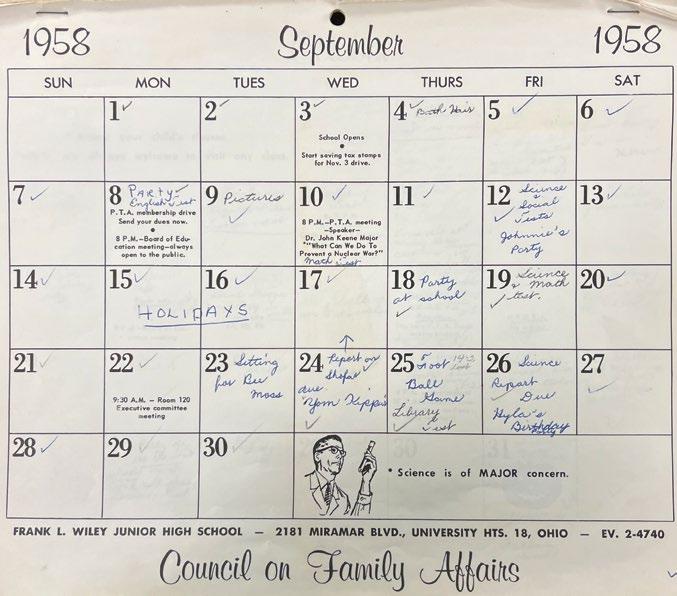 1958 September 1958
SUN MON TUES WED THURS FRI SAT
1 2 3 4 5 6
School Opens
•
Start saving tax stamps
for Nov. 3 drive.
7
8 PARTY
English Test
P.T.A. membership drive
Send your dues now.
•
8 P.M.—Board of Edu-
cation meeting—always
open to the public.
9 Pictures
10
8 P.M.—P.T.A. meeting
—Speaker—
Dr. John Keene Major
*"What Can We Do To
Prevent a Nuclear War?"
Math Test
11
12 Science
Social
Tests
Johnnie's
Party
13
14 15 16 17
HOLIDAYS
18 Party
at school
19 Science
Math
test.
20
21
22
9:30 A.M. — Room 120
Executive committee
meeting
23 Sitting
for Bu
Moss
24 Report on
Shofar
due
Yom Kippur
25 Foot
Ball
Game
Library
Test
26 Science
Report
Due
Hyla's
Birthday
27
28 29 30
* Science is of MAJOR concern.
FRANK L. WILEY JUNIOR HIGH SCHOOL — 2181 MIRAMAR BLVD., UNIVERSITY HTS. 18, OHIO — EV. 2-4740
Council on Family Affairs